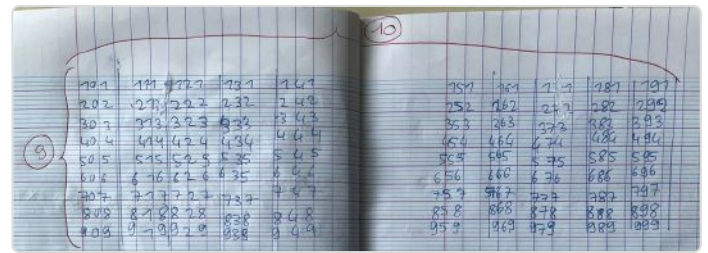 10
101 111 121 131 141 151 161 171 181 191
202 212 222 232 242 252 262 272 282 292
303 313 323 333 343 353 263 373 383 393
404 414 424 434 444 454 464 474 484 494
9 505 515 525 535 545 555 565 575 585 595
606 616 626 635 646 656 666 676 686 696
707 717 727 737 747 757 767 777 787 797
808 818 828 838 848 858 868 878 888 898
909 919 929 939 949 959 969 979 989 999